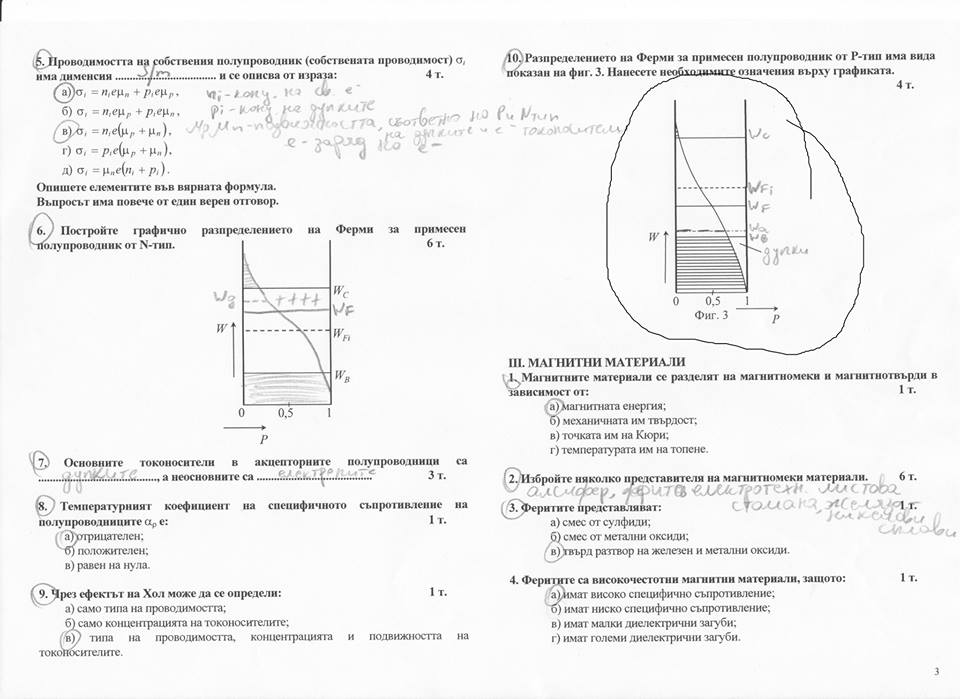 5. Проводимостта на собствения полупроводник (собствената проводимост) σi
има дименсия ............S/m............ и се описва от израза: 4 т.
а) σi = nieμn + pieμp,
ni - конц. на св. e-
б) σi = nieμp + pieμn,
pi - конц. на дупките
в) σi = nie(μp + μn),
Mp Mn - подвижността, съответно на P и N тип
на дупките и e- токоносители
г) σi = pie(μp + μn),
e - заряд на e-
д) σi = μne(ni + pi).
Опишете елементите във вярната формула.
Въпросът има повече от един верен отговор.
6. Постройте графично разпределението на Ферми за примесен
полупроводник от N-тип. 6 т.
WC
Wg ++++
WF
W
WFi
WB
0 0,5 1
P
7. Основните токоносители в акцепторните полупроводници са
дупките, а неосновните са електроните. 3 т.
8. Температурният коефициент на специфичното съпротивление на
полупроводниците αρ е: 1 т.
а) отрицателен;
б) положителен;
в) равен на нула.
9. Чрез ефектът на Хол може да се определи: 1 т.
а) само типа на проводимостта;
б) само концентрацията на токоносителите;
в) типа на проводимостта, концентрацията и подвижността на
токоносителите.
10. Разпределението на Ферми за примесен полупроводник от P-тип има вида
показан на фиг. 3. Нанесете необходимите означения върху графиката.
4 т.
Wc
WFi
WF
Wa
W
WB
дупки
0 0,5 1
Фиг. 3
P
III. МАГНИТНИ МАТЕРИАЛИ
1. Магнитните материали се разделят на магнитномеки и магнитнотвърди в
зависимост от: 1 т.
а) магнитната енергия;
б) механичната им твърдост;
в) точката им на Кюри;
г) температурата им на топене.
2. Избройте няколко представителя на магнитномеки материали. 6 т.
алсифер, ферити електротехн. листова
стомана, желязо
никелови
сплави
3. Феритите представляват: 1 т.
а) смес от сулфиди;
б) смес от метални оксиди;
в) твърд разтвор на железен и метални оксиди.
4. Феритите са високочестотни магнитни материали, защото: 1 т.
а) имат високо специфично съпротивление;
б) имат ниско специфично съпротивление;
в) имат малки диелектрични загуби;
г) имат големи диелектрични загуби.
3